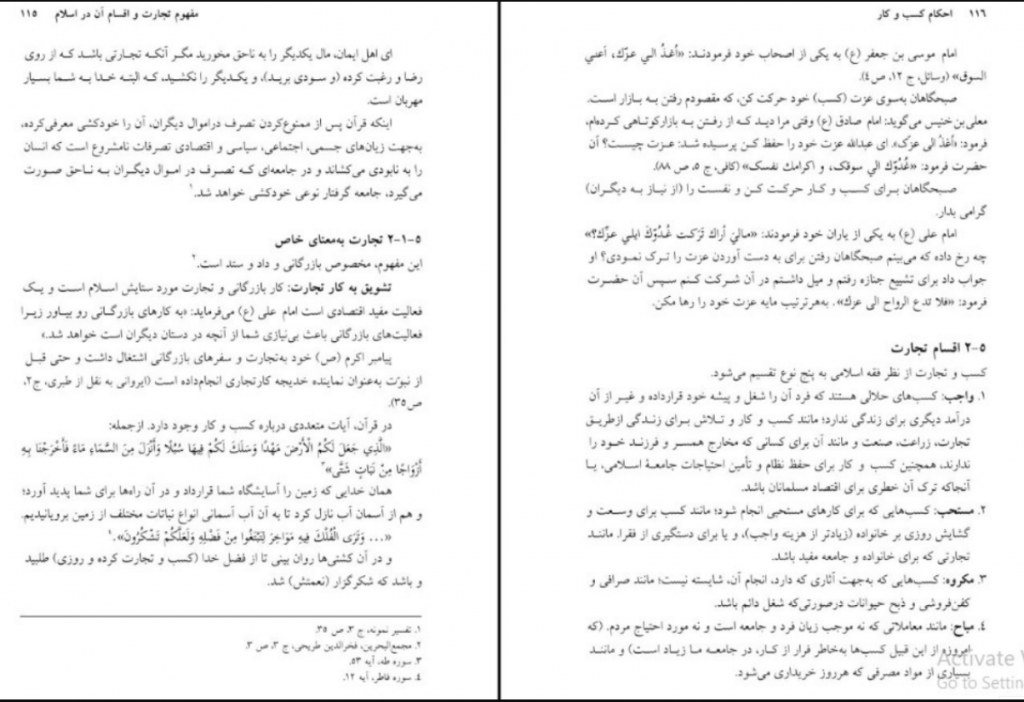 مفهوم تجارت و اقسام آن در اسلام ۱۱۵
ای اهل ایمان، مال یکدیگر را به ناحق مخورید مگر آنکه تجارتی باشد که از روی
رضا و رغبت کرده (و سودی برید)، و یکدیگر را نکشید، که البته خدا به شما بسیار
مهربان است.
اینکه قرآن پس از ممنوع‌کردن تصرف دراموال دیگران، آن را خودکشی معرفی‌کرده،
به‌جهت زیان‌های جسمی، اجتماعی، سیاسی و اقتصادی تصرفات نامشروع است که انسان
را به نابودی می‌کشاند و در جامعه‌ای که تصرف در اموال دیگران به ناحق صورت
می‌گیرد، جامعه گرفتار نوعی خودکشی خواهد شد.۱
۲-۱-۵ تجارت به‌معنای خاص
این مفهوم، مخصوص بازرگانی و داد و ستد است.۲
تشویق به کار تجارت: کار بازرگانی و تجارت مورد ستایش اسلام است و یک
فعالیت مفید اقتصادی است امام علی (ع) می‌فرماید: «به کارهای بازرگانی رو بیاور زیرا
فعالیت‌های بازرگانی باعث بی‌نیازی شما از آنچه در دستان دیگران است خواهد شد.»
پیامبر اکرم (ص) خود به‌تجارت و سفرهای بازرگانی اشتغال داشت و حتی قبل
از نبوّت به‌عنوان نماینده خدیجه کارتجاری انجام‌داده است (ایروانی به نقل از طبری، ج۲،
ص۳۵).
در قرآن، آیات متعددی درباره کسب و کار وجود دارد. ازجمله:
«الَّذِي جَعَلَ لَكُمُ الْأَرْضَ مَهْدًا وَسَلَكَ لَكُمْ فِيهَا سُبُلًا وَأَنْزَلَ مِنَ السَّمَاءِ مَاءً فَأَخْرَجْنَا بِهِ
أَزْوَاجًا مِنْ نَبَاتٍ شَتَّى»۳
همان خدایی که زمین را آسایشگاه شما قرارداد و در آن راه‌ها برای شما پدید آورد؛
و هم از آسمان آب نازل کرد تا به آن آب آسمانی انواع نباتات مختلف از زمین برویانیدیم.
«... وَتَرَى الْفُلْكَ فِيهِ مَوَاخِرَ لِتَبْتَغُوا مِنْ فَضْلِهِ وَلَعَلَّكُمْ تَشْكُرُونَ».۴
و در آن کشتی‌ها روان بینی تا از فضل خدا (کسب و تجارت کرده و روزی) طلبید
و باشد که شکرگزار (نعمتش) شد.
۱. تفسیر نمونه، ج ۳، ص ۳۵.
۲. مجمع‌البحرین، فخرالدین طریحی، ج ۳، ص ۳.
۳. سوره طه، آیه ۵۳.
۴. سوره فاطر، آیه ۱۲.
۱۱۶ احکام کسب و کار
امام موسی بن جعفر (ع) به یکی از اصحاب خود فرمودند: «أغدُ الي عزّك، أعني
السوق» (وسائل، ج ۱۲، ص۴).
صبحگاهان به‌سوی عزت (کسب) خود حرکت کن، که مقصودم رفتن به بازار است.
معلی‌بن‌خنیس می‌گوید: امام صادق (ع) وقتی مرا دید که از رفتن به بازارکوتاهی کرده‌ام،
فرمود: «أغدُ الی عزک». ای عبدالله عزت خود را حفظ کن پرسیده شد: عزت چیست؟ آن
حضرت فرمود: «غُدُوّك الي سوقك، و اكرامك نفسك» (کافی، ج ۵، ص ۸۸).
صبحگاهان برای کسب و کار حرکت کن و نفست را (از نیاز به دیگران)
گرامی بدار.
امام علی (ع) به یکی از یاران خود فرمودند: «مالیَ أراك تَرَكت غُدُوّكَ اِلي عزّك؟»
چه رخ داده که می‌بینم صبحگاهان رفتن برای به دست آوردن عزت را ترک نمودی؟ او
جواب داد برای تشییع جنازه رفتم و میل داشتم در آن شرکت کنم سپس آن حضرت
فرمود: «فلا تدع الرواح الی عزك». به‌هرترتیب مایه عزت خود را رها مکن.
۲-۵ اقسام تجارت
کسب و تجارت از نظر فقه اسلامی به پنج نوع تقسیم می‌شود.
۱. واجب: کسب‌های حلالی هستند که فرد آن را شغل و پیشه خود قرارداده و غیر از آن
درآمد دیگری برای زندگی ندارد؛ مانند کسب و کار و تلاش برای زندگی ازطریق
تجارت، زراعت، صنعت و مانند آن برای کسانی که مخارج همسر و فرزند خود را
ندارند، همچنین کسب و کار برای حفظ نظام و تأمین احتیاجات جامعهٔ اسلامی، یا
آنجاکه ترک آن خطری برای اقتصاد مسلمانان باشد.
۲. مستحب: کسب‌هایی که برای کارهای مستحبی انجام شود؛ مانند کسب برای وسعت و
گشایش روزی بر خانواده (زیادتر از هزینه واجب)، و یا برای دستگیری از فقرا. مانند
تجارتی که برای خانواده و جامعه مفید باشد.
۳. مکروه: کسب‌هایی که به‌جهت آثاری که دارد، انجام آن، شایسته نیست؛ مانند صرافی و
کفن‌فروشی و ذبح حیوانات درصورتی‌که شغل دائم باشد.
۴. مباح: مانند معاملاتی که نه موجب زیان فرد و جامعه است و نه مورد احتیاج مردم. (که
امروزه از این قبیل کسب‌ها به‌خاطر فرار از کار، در جامعه ما زیاد است) و مانند
بسیاری از مواد مصرفی که هرروز خریداری می‌شود.
Activate W
Go to Settin